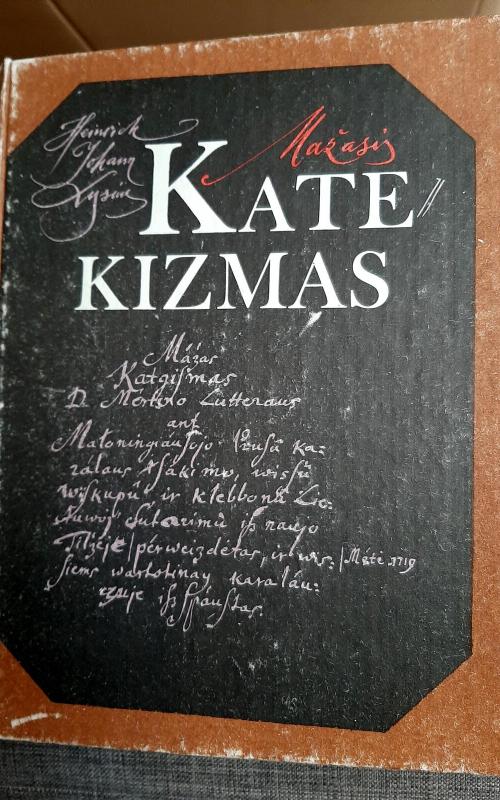 Heinrich
Johann
Lysius
Mažasis
KATE//
KIZMAS
Máźas
Katgismas
D. Mertino Lutteraus
ant
Małoningiausojo Prusû ka:
rálaus Asákimo, wissû
Wiskupû ir Klebbonû Lie:
tuwoj' Sutarimû iß naujo
Tilźėje pérweizdėtas, ir wis: | Mėtė 1719
siems wartotinay karaláu:
czuje ißspáustas.